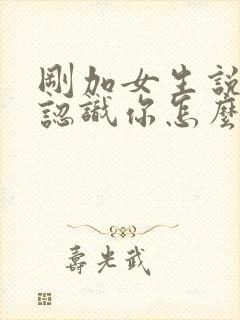 剛加女生說
認識你怎麼
壽光武